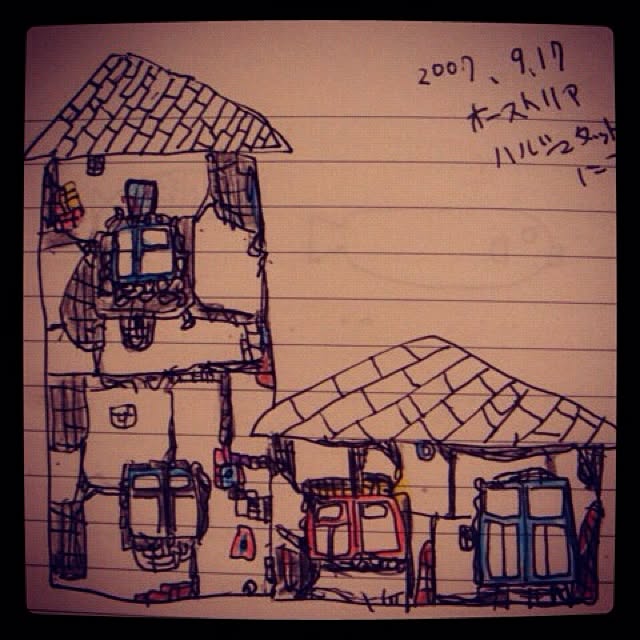 2007、9、17
オーストリア
ハルシュタット
にて